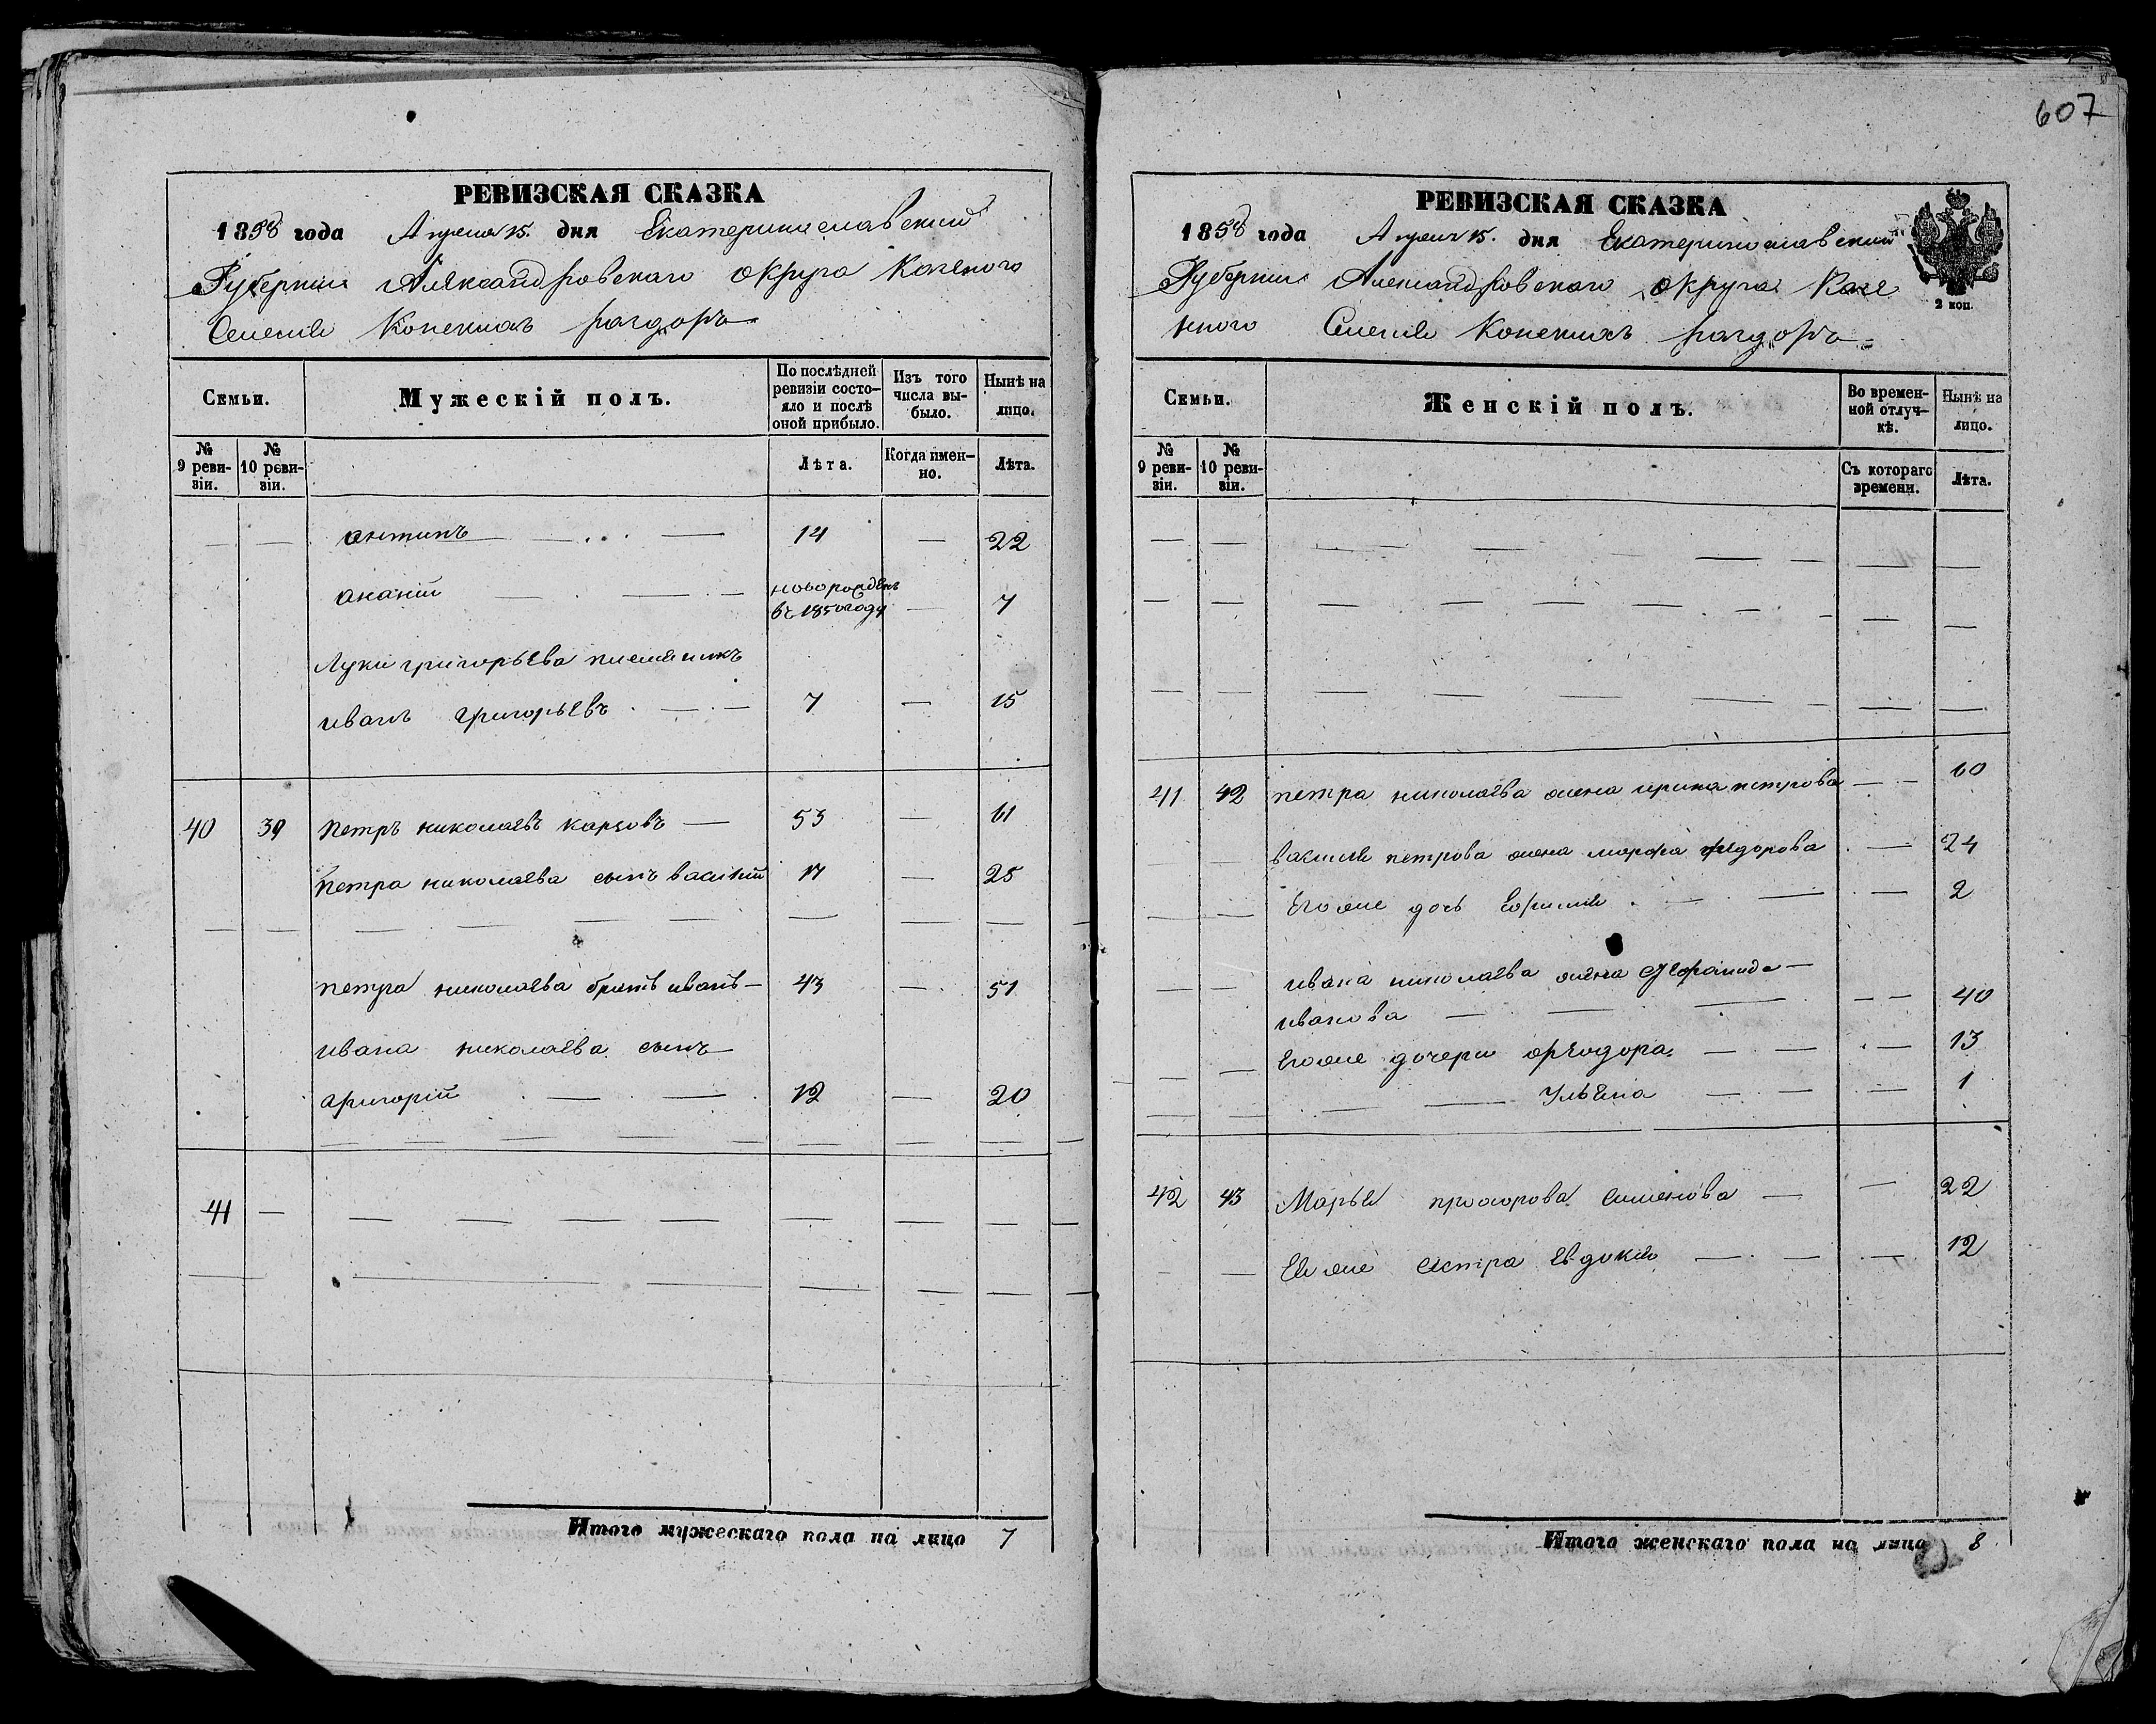 607
РЕВИЗСКАЯ СКАЗКА
1858 года Апреля 15. дня Екатеринославский
Губернии Александровскаго округа Казеного
Селения Конскихъ раздоръ
Семьи. Мужескій полъ. По послѣдней ревизіи состояло и послѣ оной прибыло. Изъ того числа выбыло. Нынѣ на лицо.
№ 9 ревизіи. № 10 ревизіи. Лѣта. Когда имен-но. Лѣта.
антипъ 14 — 22
ананій новорожденъ в 1850 году — 7
Луки григорьева племяникъ
иванъ григорьевъ 7 — 15
40 39 Петръ николаевъ карповъ — 53 — 61
Петра николаева сынъ василий 17 — 25
петра николаева братъ иванъ — 43 — 51
ивана николаева сынъ
григорій 12 — 20
41 —
Итого мужескаго пола на лицо 7
РЕВИЗСКАЯ СКАЗКА
1858 года Апреля 15. дня Екатеринославский
Губернии Александровскаго округа Казе
2 коп.
нного Селения Конскихъ раздоръ
Семьи. Женскій полъ. Во времен-ной отлуч-кѣ. Нынѣ на лицо.
№ 9 ревизіи. № 10 ревизіи. Съ котораго времени. Лѣта.
41 42 петра николаева жена ирина петрова — 60
василия петрова жена марфа федорова — 24
Его же дочь — 2
ивана николаева жена
иванова — 40
Его же дочери феодора — 13
Ульяна — 1
42 43 Марья прохорова семенова — 22
Ея же сестра Евдокия — 12
Итого женскаго пола на лицо 8